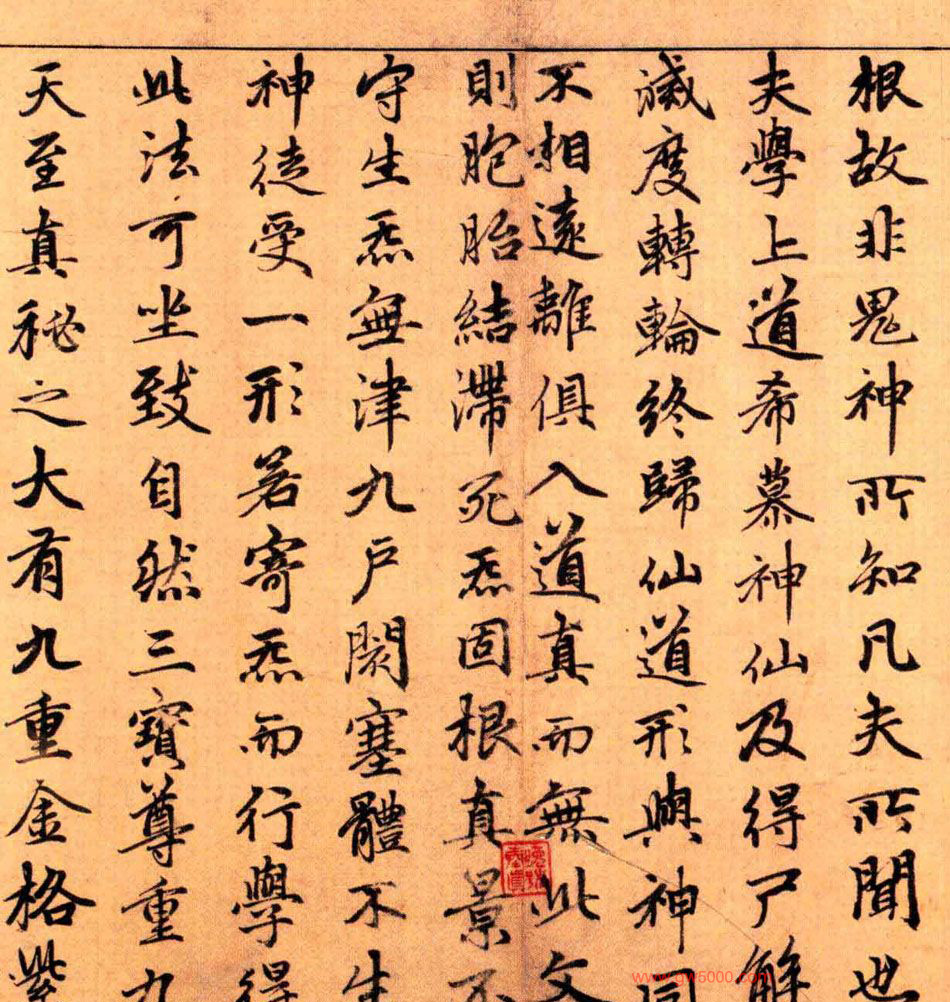 根故非鬼神所知凡夫所聞也
夫學上道希慕神仙及得尸解
滅度轉輪終歸仙道形與神同
不相遠離俱入道真而無此文
則胞胎結滯死炁固根真景不
守生炁無津九戶閡塞體不生
神徒受一形若寄炁而行學得
此法可坐致自然三寶尊重九
天至真秘之大有九重金格紫
www.gw5000.com